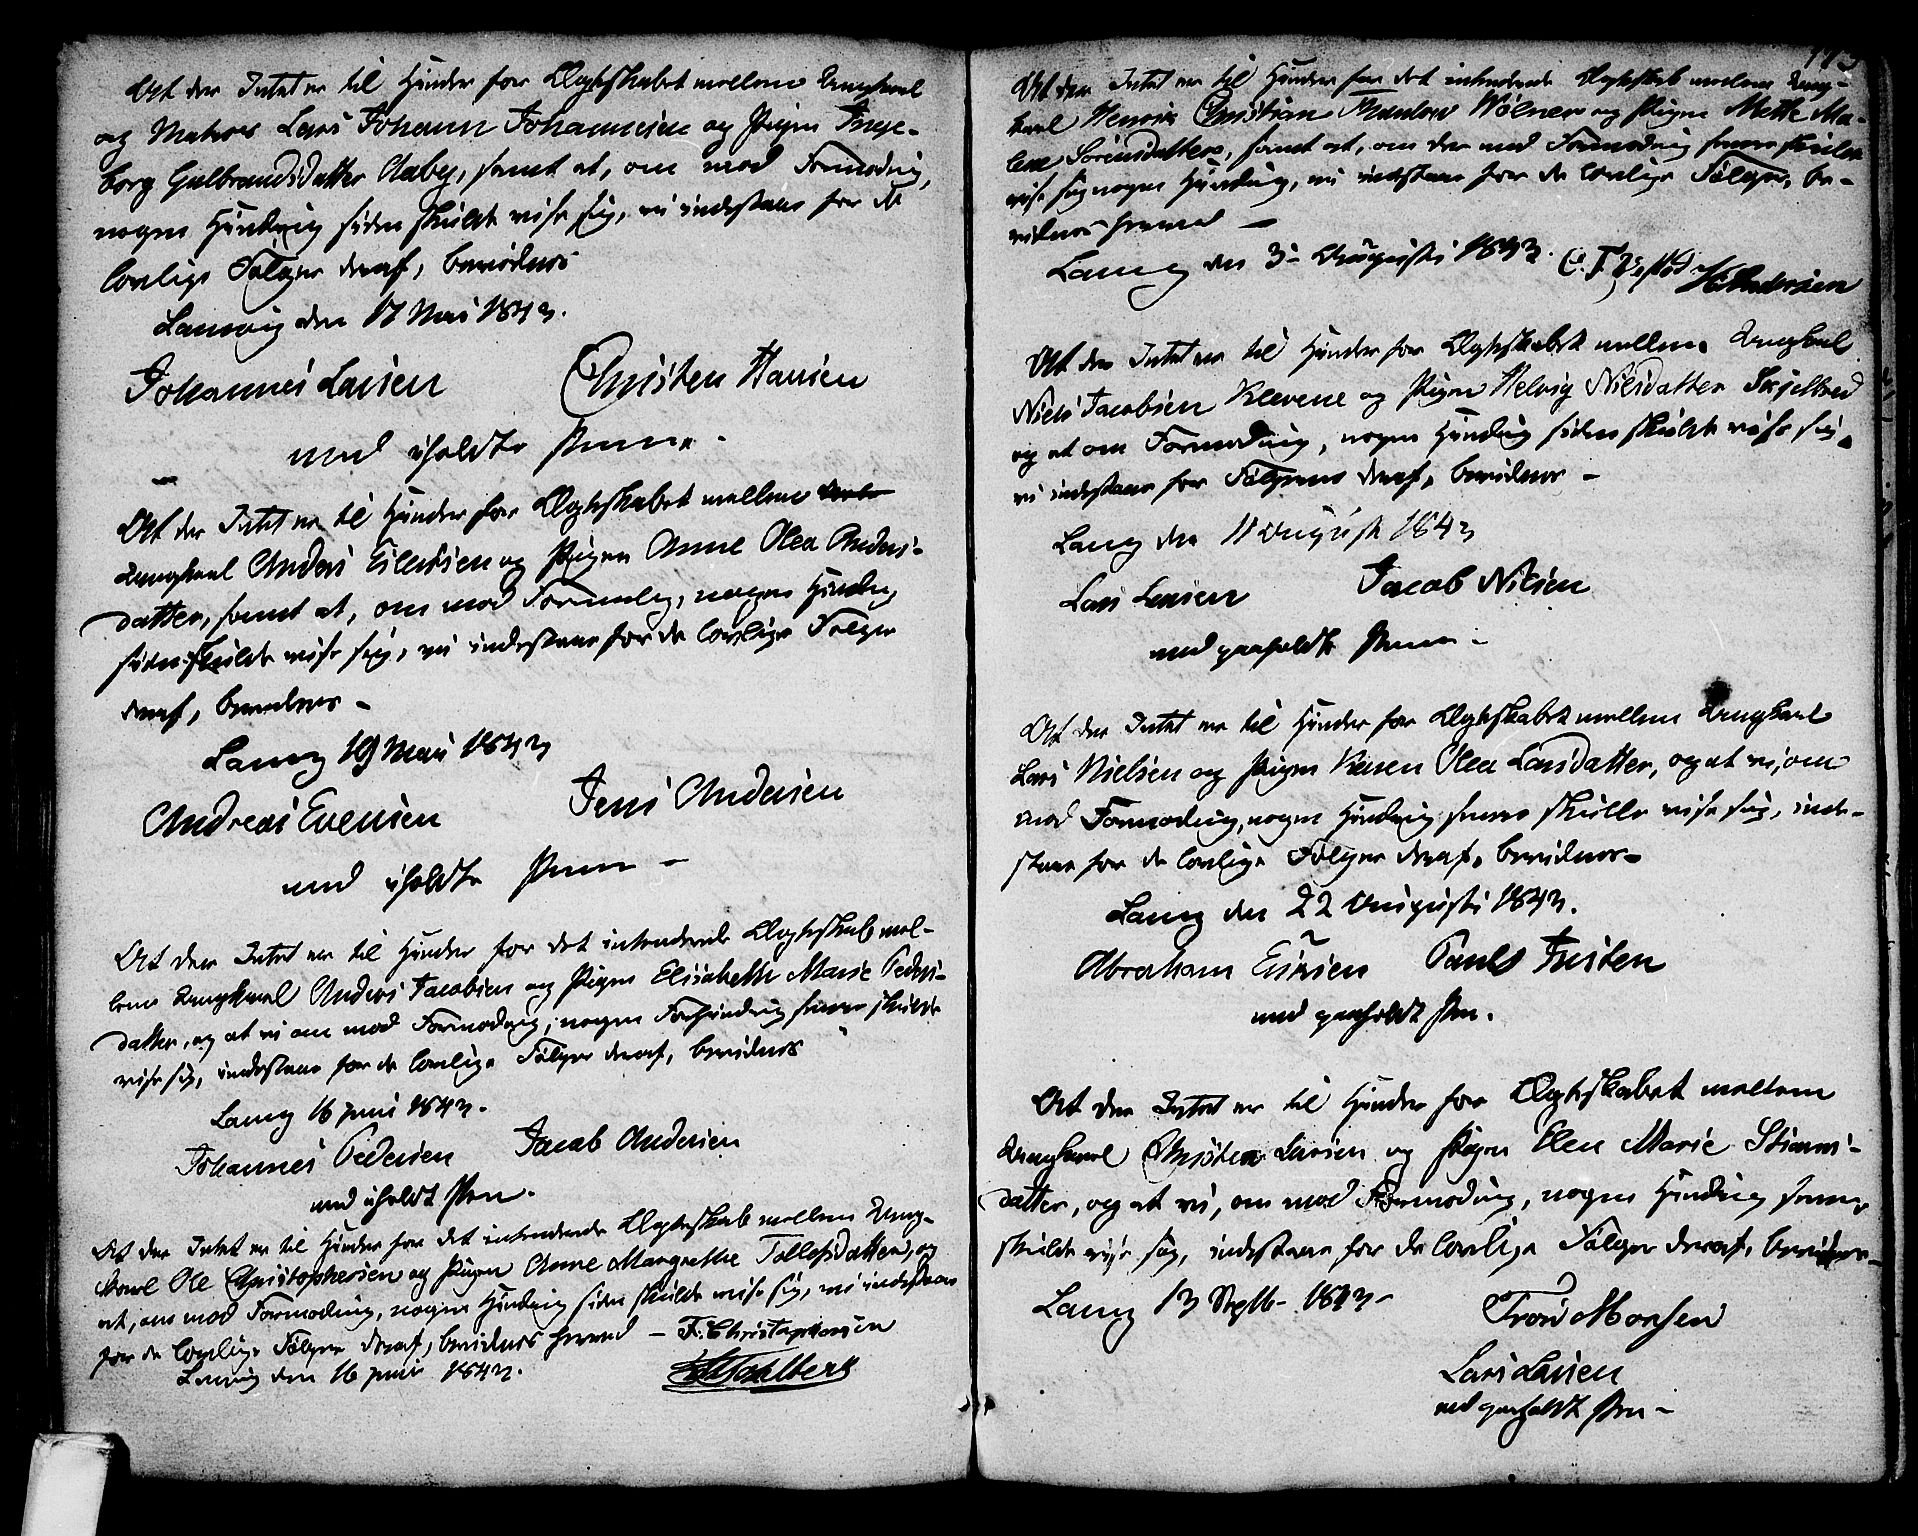 At der Intet er til Hinder for Ægteskabet mellem Ungkarl
og Matros Lars Johann Johannesen og Pigen Inge-
borg Gulbrandsdatter Aaby, samt at, om mod Formodning,
nogen Hindring siden skulde vise sig, vi indestaae for de
lovlige Følger deraf, bevidnes
Laurvig den 17 Mai 1843.
Johannes Larsen Christen Hansen
med iholdte Penne.
At der Intet er til Hinder for Ægteskabet mellem
Ungkarl Anders Eilertsen og Pigen Anne Olea Anders-
datter, samt at, om mod Formodng, nogen Hindrg
siden skulde vise sig, vi indestaae for de lovlige Følger
deraf, bevidnes –
Laurvg 19 Mai 1843
Andreas Evensen Jens Andersen
med iholdte Penne –
At der Intet er til Hinder for det intenderede Ægteskab mel-
lem Ungkarl Anders Jacobsen og Pigen Elisabeth Marie Peders-
datter, og at vi om mod Formodning, nogen Forhindring senere skulde
vise sig, indestaae for de lovlige Følger deraf, bevidnes
Laurvg 16 Juni 1843.
Johannes Pedersen Jacob Andersen
med iholdt Pen.
At der Intet er til Hinder for det intenderede Ægteskab mellem Ung-
karl Ole Christophersen og Pigen Anne Margrethe Tollefsdatter, og
at, om mod Formodning, nogen Hindring siden skulde vise sig, vi indestaae
for de lovlige Følger deraf, bevidnes herved – F. Christophersen
Laurvig den 16 Juni 1843.
At der Intet er til Hinder for det intenderede Ægteskab mellem Ung-
karl Henrik Christian Wølner og Pigen Mette Ma-
lene Sørensdatter, samt at, om der mod Formodning senere skulde
vise sig nogen Hindring, vi indestaae for de lovlige Følger, be-
vidnes herved –
Laurvg den 3. Augusti 1843. H. Andersen
At der Intet er til Hinder for Ægteskabet mellem Ungkarl
Niels Jacobsen Klevene og Pigen Helvig Nilsdatter
og at om Formodning, nogen Hindring siden skulde vise sig,
vi indestaae for Følgerne deraf, bevidnes –
Laurvg den 11 August 1843
Lars Larsen Jacob Nilsen
med paaholdte Penne –
At der Intet er til Hinder for Ægteskabet mellem Ungkarl
Lars Nielsen og Pigen Karen Olea Larsdatter, og at vi, om
mod Formodning, nogen Hindring senere skulle vise sig, inde-
staae for de lovlige Følger deraf, bevidnes –
Laurvg den 22 Augusti 1843.
Abraham Paul
med paaholdt Pen.
At der Intet er til Hinder for Ægteskabet mellem
Ungkarl Christen Larsen og Pigen Elen Marie
datter, og at vi, om mod Formodning, nogen Hindring senere
skulde vise sig, indestaae for de lovlige Følger deraf, bevidnes –
Laurvg 13 Septb. 1843 –
Lars Larsen
med paaholdt Pen –